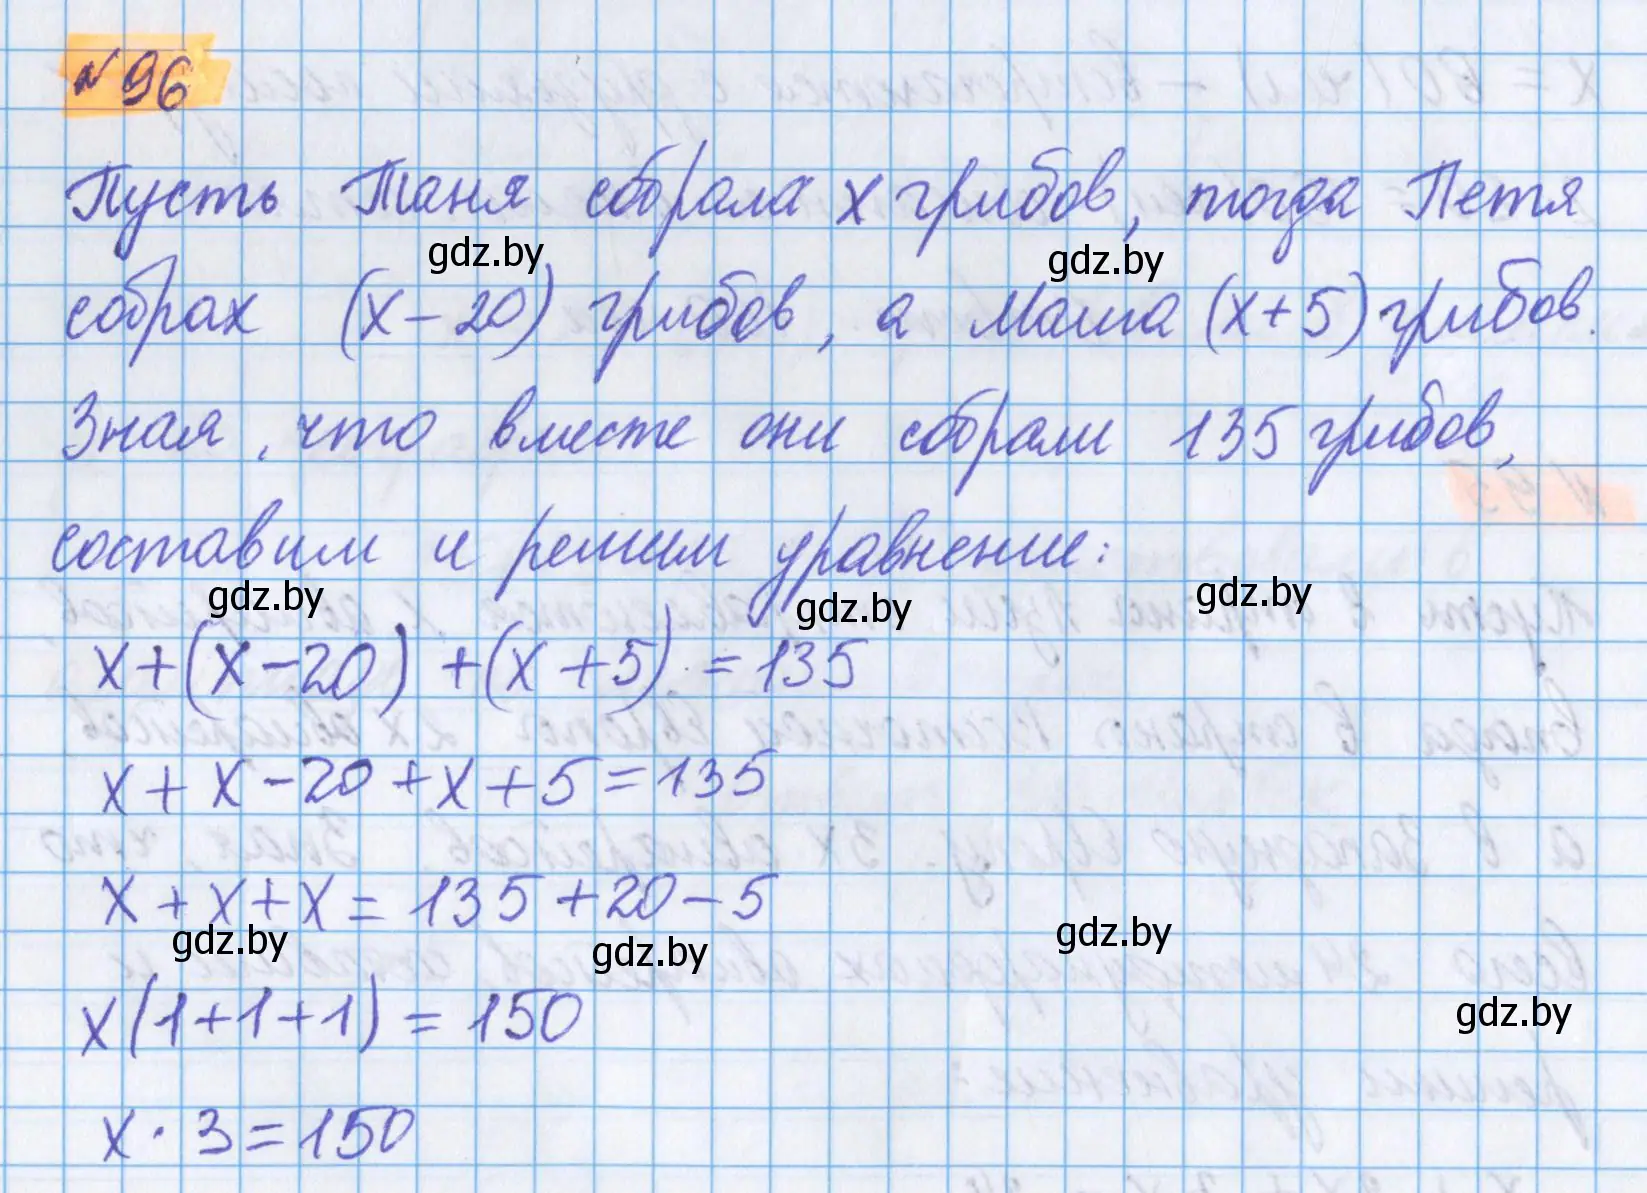 №96
Пусть Таня собрала x грибов, тогда Петя
gdz.by gdz.by
собрах (x-20) грибов, а Маша (x+5) грибов.
Зная, что вместе они собрали 135 грибов,
составим и решим уравнение:
gdz.by gdz.by gdz.by
x+(x-20)+(x+5)=135
x+x-20+x+5=135
x+x+x=135+20-5
gdz.by gdz.by gdz.by
x(1+1+1)=150
gdz.by
x·3=150